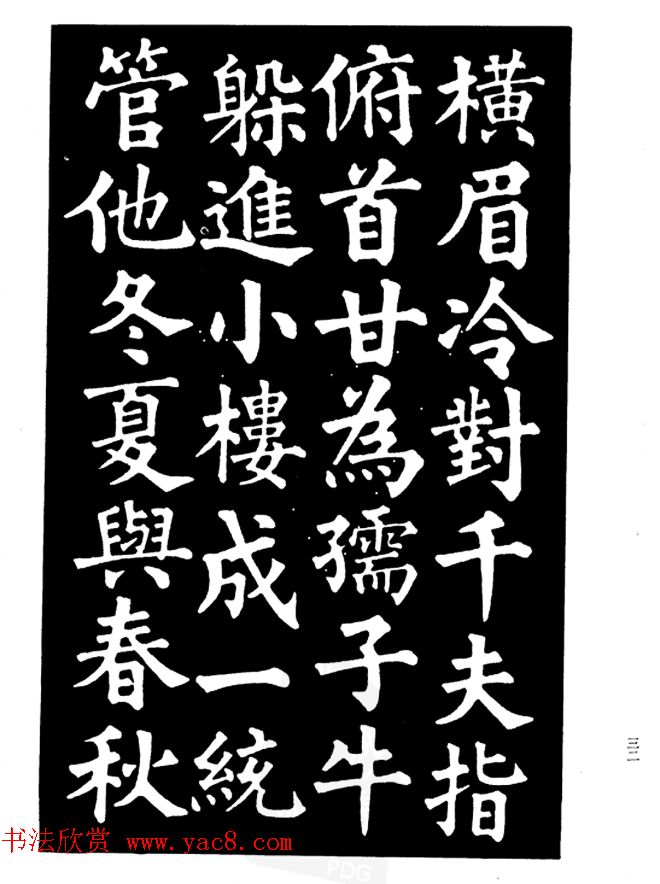 橫眉冷對千夫指
俯首甘為孺子牛
躲進小樓成一統
管他冬夏與春秋
三三
书法欣赏 www.yac8.com
PDG